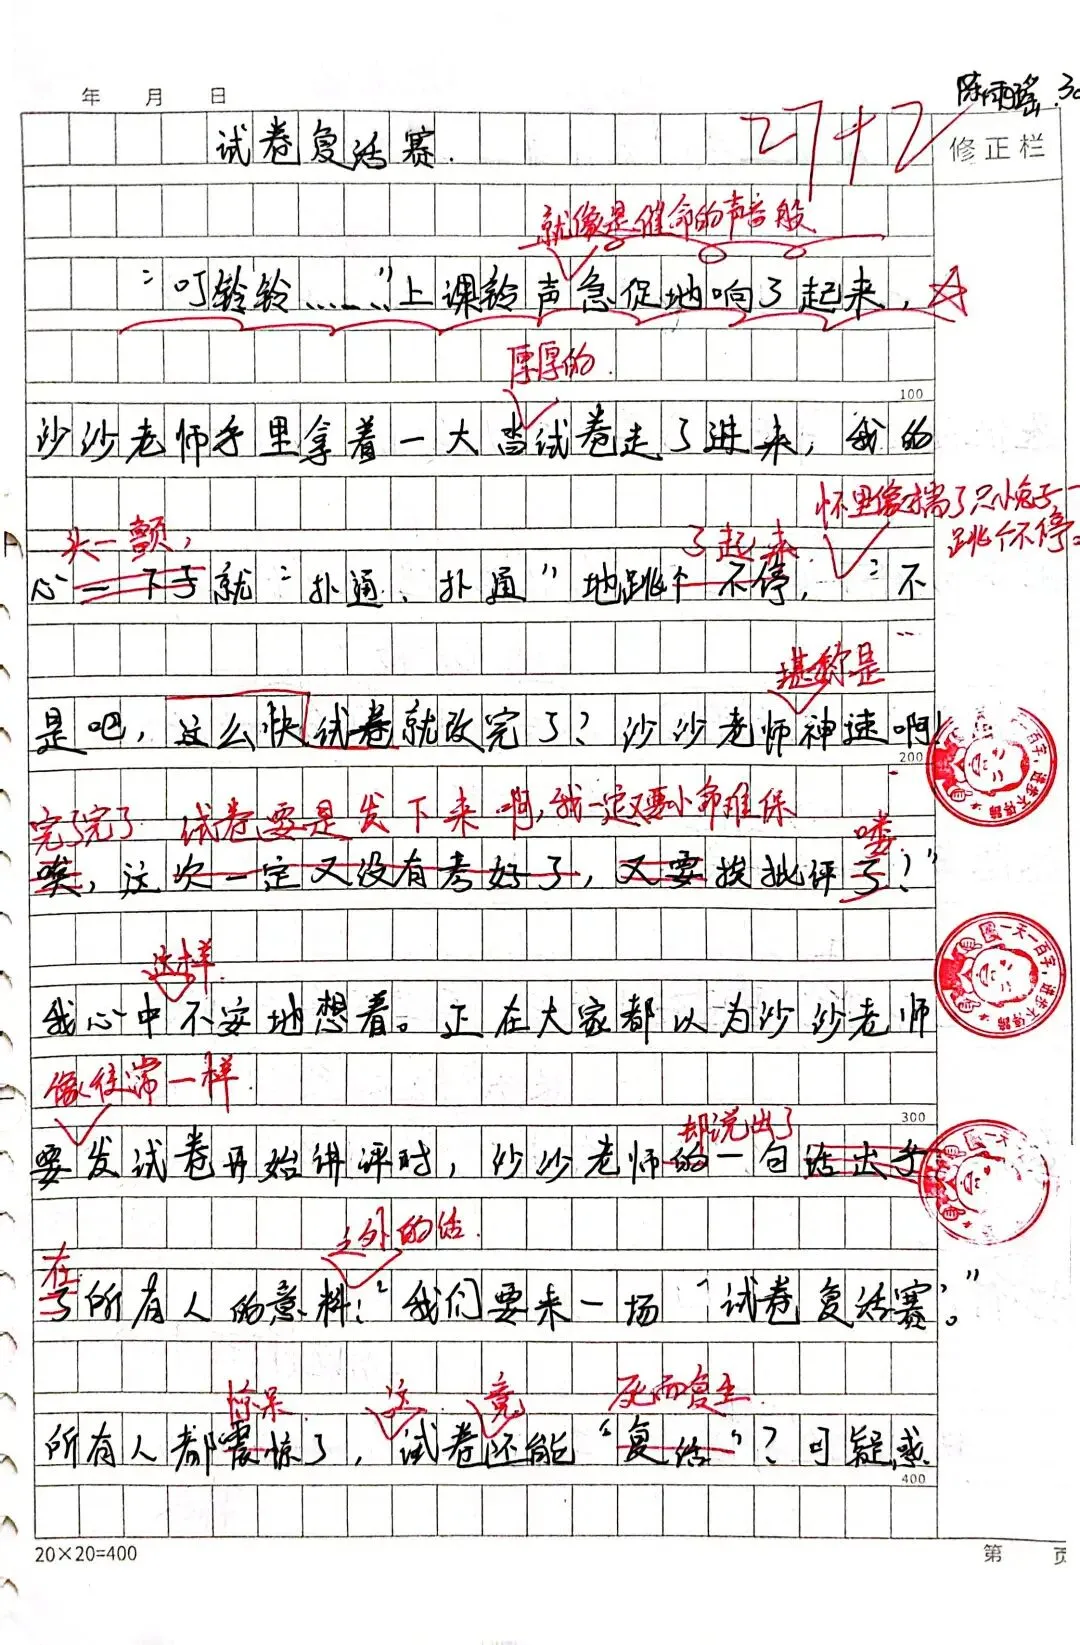 年 月 日
陈雨瑶.30
试卷复活赛.
27+2
修正栏
就像是催命的声音般
“叮铃铃……”上课铃声急促地响了起来,
厚厚的
100
沙沙老师手里拿着一大沓试卷走了进来,我的
怀里像揣了只小兔子一
跳个不停。
头一颤,
了起来
心一下子就“扑通、扑通”地跳个不停,“不
堪称是
是吧,这么快试卷就改完了?沙沙老师神速啊!
200
完了完了 试卷要是发下来啊,我一定又要小命难保
喽
唉,这次一定又没有考好了,又要挨批评了!”
这样
我心中不安地想着。正在大家都以为沙沙老师
像往常一样
300
却说出了
要发试卷开始讲评时,沙沙老师的一句话出乎
之外的话
在
了所有人的意料:“我们要来一场‘试卷复活赛’。”
惊呆 这 竟 死而复生
所有人都震惊了,试卷还能“复活”?可疑惑
400
20×20=400
第 页
一天一百字,进步不得了
一天一百字,进步不得了